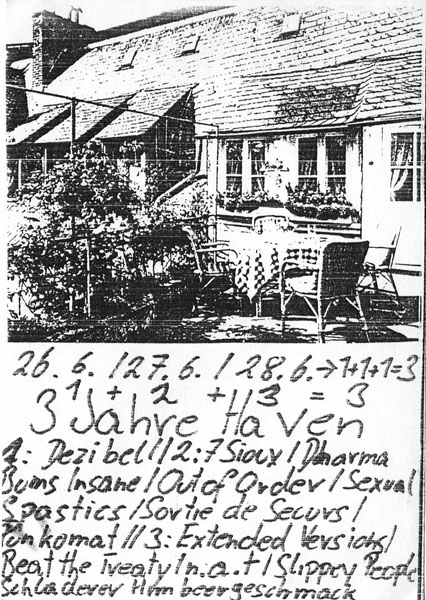 26. 6. / 27. 6. / 28. 6. → 1+1+1=3
1 + 2 + 3 = 3
3 Jahre Haven
1: Dezibel // 2: 7 Sioux / Dharma
Bums Insane / Out of Order / Sexual
Spastics / Sortie de Securs /
Punkomat // 3: Extended Versions /
Beat the Treaty / n.a.t / Slippey People
Schladerer Himbeergeschmack